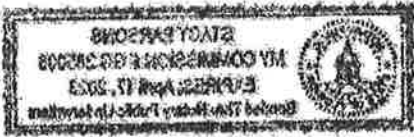 STACY PARSONS
MY COMMISSION # GG
EXPIRES: April 17, 2023
Bonded Thru Notary Public Underwriters